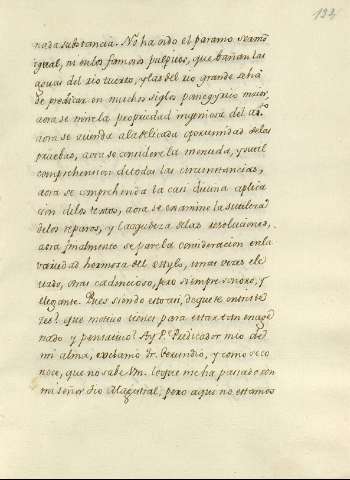 134
nada substancia. No ha oido el paramo sermon
igual, ni en los famosos pulpitos, que bañan las
aguas del rio tuerto, y las del rio grande se há
de predicar en muchos siglos panegyrico mayor,
aora se mire la propiedad ingeniosa del as.to
aora se atienda a la delicada oportunidad de las
pruebas, aora se considere la menuda, y sutil
comprehension de todas las circunstancias,
aora se comprehenda la casi divina aplica
cion de los textos, aora se examine la sutileza
de los reparos, y la agudeza de las resoluciones,
aora finalmente se pare la consideracion en la
variedad hermosa del estylo, unas veces ele
vado, otras cadencioso, pero siempre sonoro, y
elegante. Pues siendo esto assi, de que te entriste
zes? que motivo tienes para estar tan enage
nado y pensativo? Ay P.e Predicador mio de
mi alma, exclamo fr. Gerundio, y como se co
noce, que no sabe Vm. lo que me ha passado con
mi señor tio Magistral, pero aqui no estamos